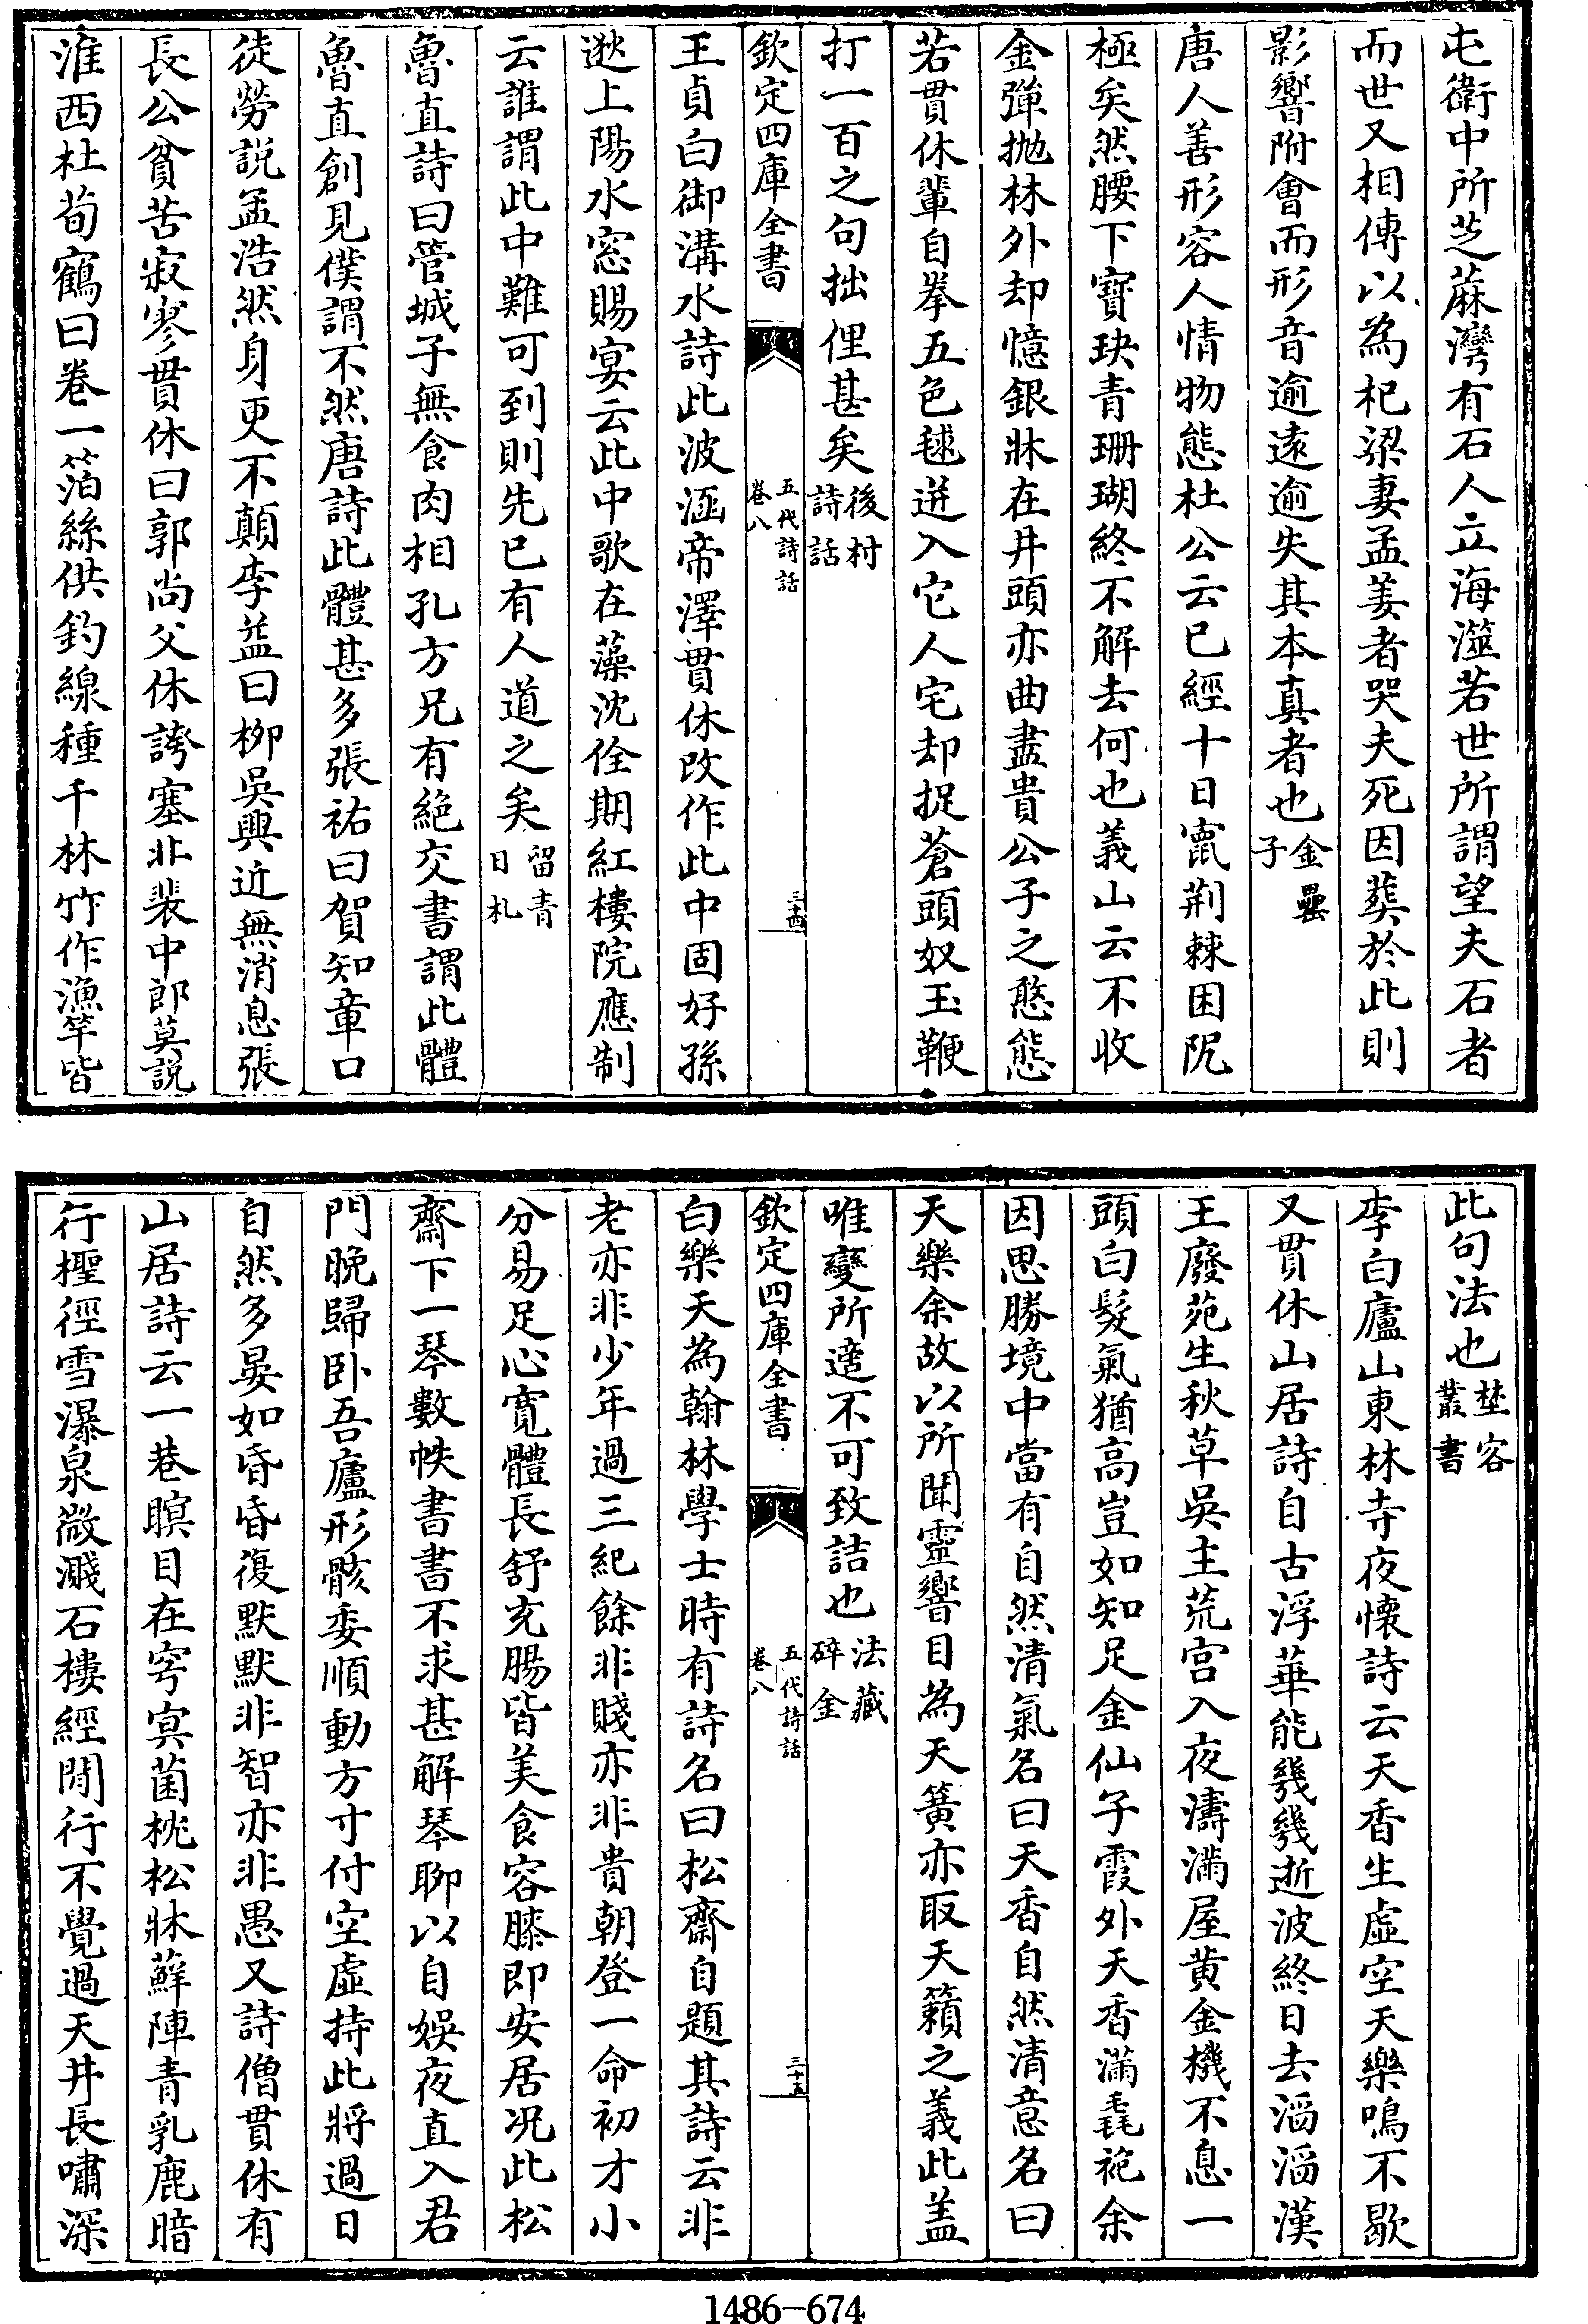 屯衛中所芝蔴灣有石人立海澨若世所謂望夫石者
而世又相傳以為杞梁妻孟姜者哭夫死因葬於此則
影響附會而形音逾遠逾失其本真者也金罍子
唐人善形容人情物態杜公云已經十日竄荆棘困阨
極矣然腰下寳玦青珊瑚終不解去何也義山云不收
金彈抛林外却憶銀牀在井頭亦曲盡貴公子之憨態
若貫休輩自拳五色毬迸入它人宅却捉蒼頭奴玉鞭
打一百之句拙俚甚矣後村詩話
欽定四庫全書 五代詩話卷八 三十四
王貞白御溝水詩此波涵帝澤貫休改作此中固好孫
逖上陽水窓賜宴云此中歌在藻沈佺期紅樓院應制
云誰謂此中難可到則先已有人道之矣留青日札
魯直詩曰管城子無食肉相孔方兄有絶交書謂此體
魯直創見僕謂不然唐詩此體甚多張祐曰賀知章口
徒勞説孟浩然身更不顛李益曰栁吳興近無消息張
長公貧苦寂寥貫休曰郭尚父休誇塞北裴中郎莫説
淮西杜荀鶴曰卷一箔絲供釣線種千林竹作漁竿皆
此句法也埜客叢書
李白廬山東林寺夜懷詩云天香生虛空天樂鳴不歇
又貫休山居詩自古浮華能幾幾逝波終日去滔滔漢
王廢苑生秋草吳主荒宫入夜濤滿屋黄金機不息一
頭白髮氣猶高豈如知足金仙子霞外天香滿毳袍余
因思勝境中當有自然清氣名曰天香自然清意名曰
天樂余故以所聞靈響目為天簧亦取天籟之義此盖
唯變所適不可致詰也法藏碎金
欽定四庫全書 五代詩話卷八 三十五
白樂天為翰林學士時有詩名曰松齋自題其詩云非
老亦非少年過三紀餘非賤亦非貴朝登一命初才小
分易足心寛體長舒充腸皆美食容膝即安居况此松
齋下一琴數帙書書不求甚解琴聊以自娱夜直入君
門晚歸卧吾廬形骸委順動方寸付空虛持此將過日
自然多晏如昏昏復默默非智亦非愚又詩僧貫休有
山居詩云一巷瞑目在穹㝠菌枕松牀蘚陣青乳鹿暗
行檉徑雪瀑泉㣲濺石樓經閒行不覺過天井長嘯深
1486-674